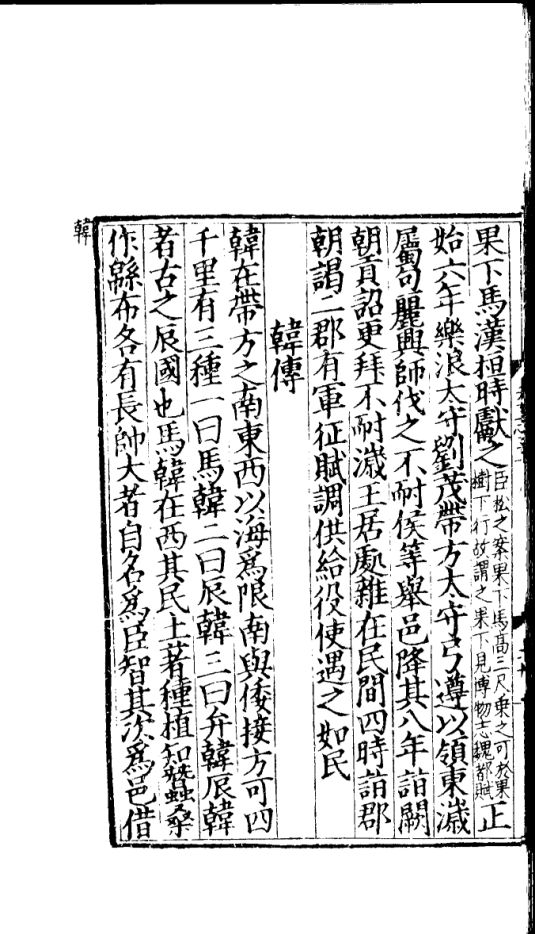 果下馬漢桓時獻之臣松之案果下馬高三尺乘之可於果樹下行故謂之果下見博物志魏都賦正
始六年樂浪太守劉茂帶方太守弓遵以領東濊
屬句麗興師伐之不耐侯等舉邑降其八年詣闕
朝貢詔更拜不耐濊王居處雜在民間四時詣郡
朝謁二郡有軍征賦調供給役使遇之如民
韓傳
韓在帶方之南東西以海爲限南與倭接方可四
千里有三種一曰馬韓二曰辰韓三曰弁韓辰韓
者古之辰國也馬韓在西其民土著種植知蠶桑
作緜布各有長帥大者自名爲臣智其次爲邑借
韓